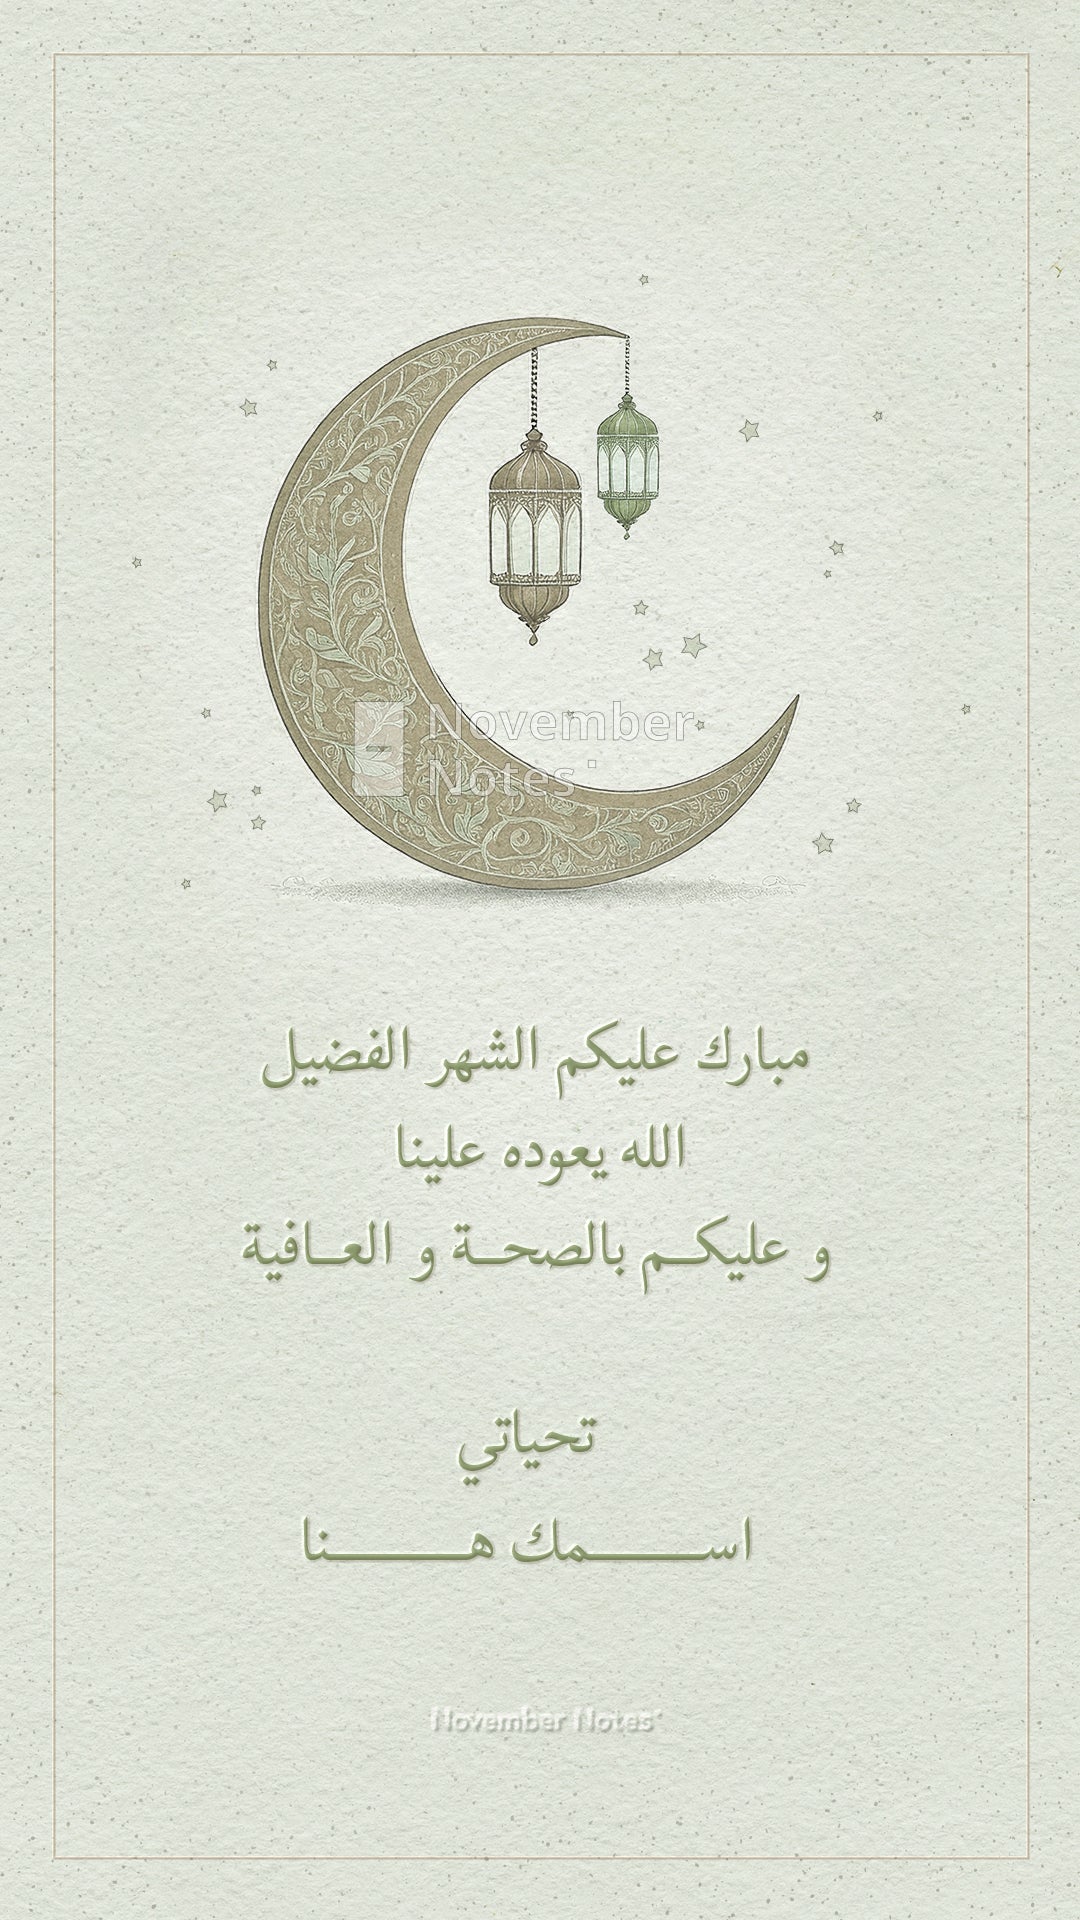 November
Notes
مبارك عليكم الشهر الفضيل
الله يعوده علينا
و عليكـم بالصحـة و العـافية
تحياتي
اســـمك هـــنا
November Notes